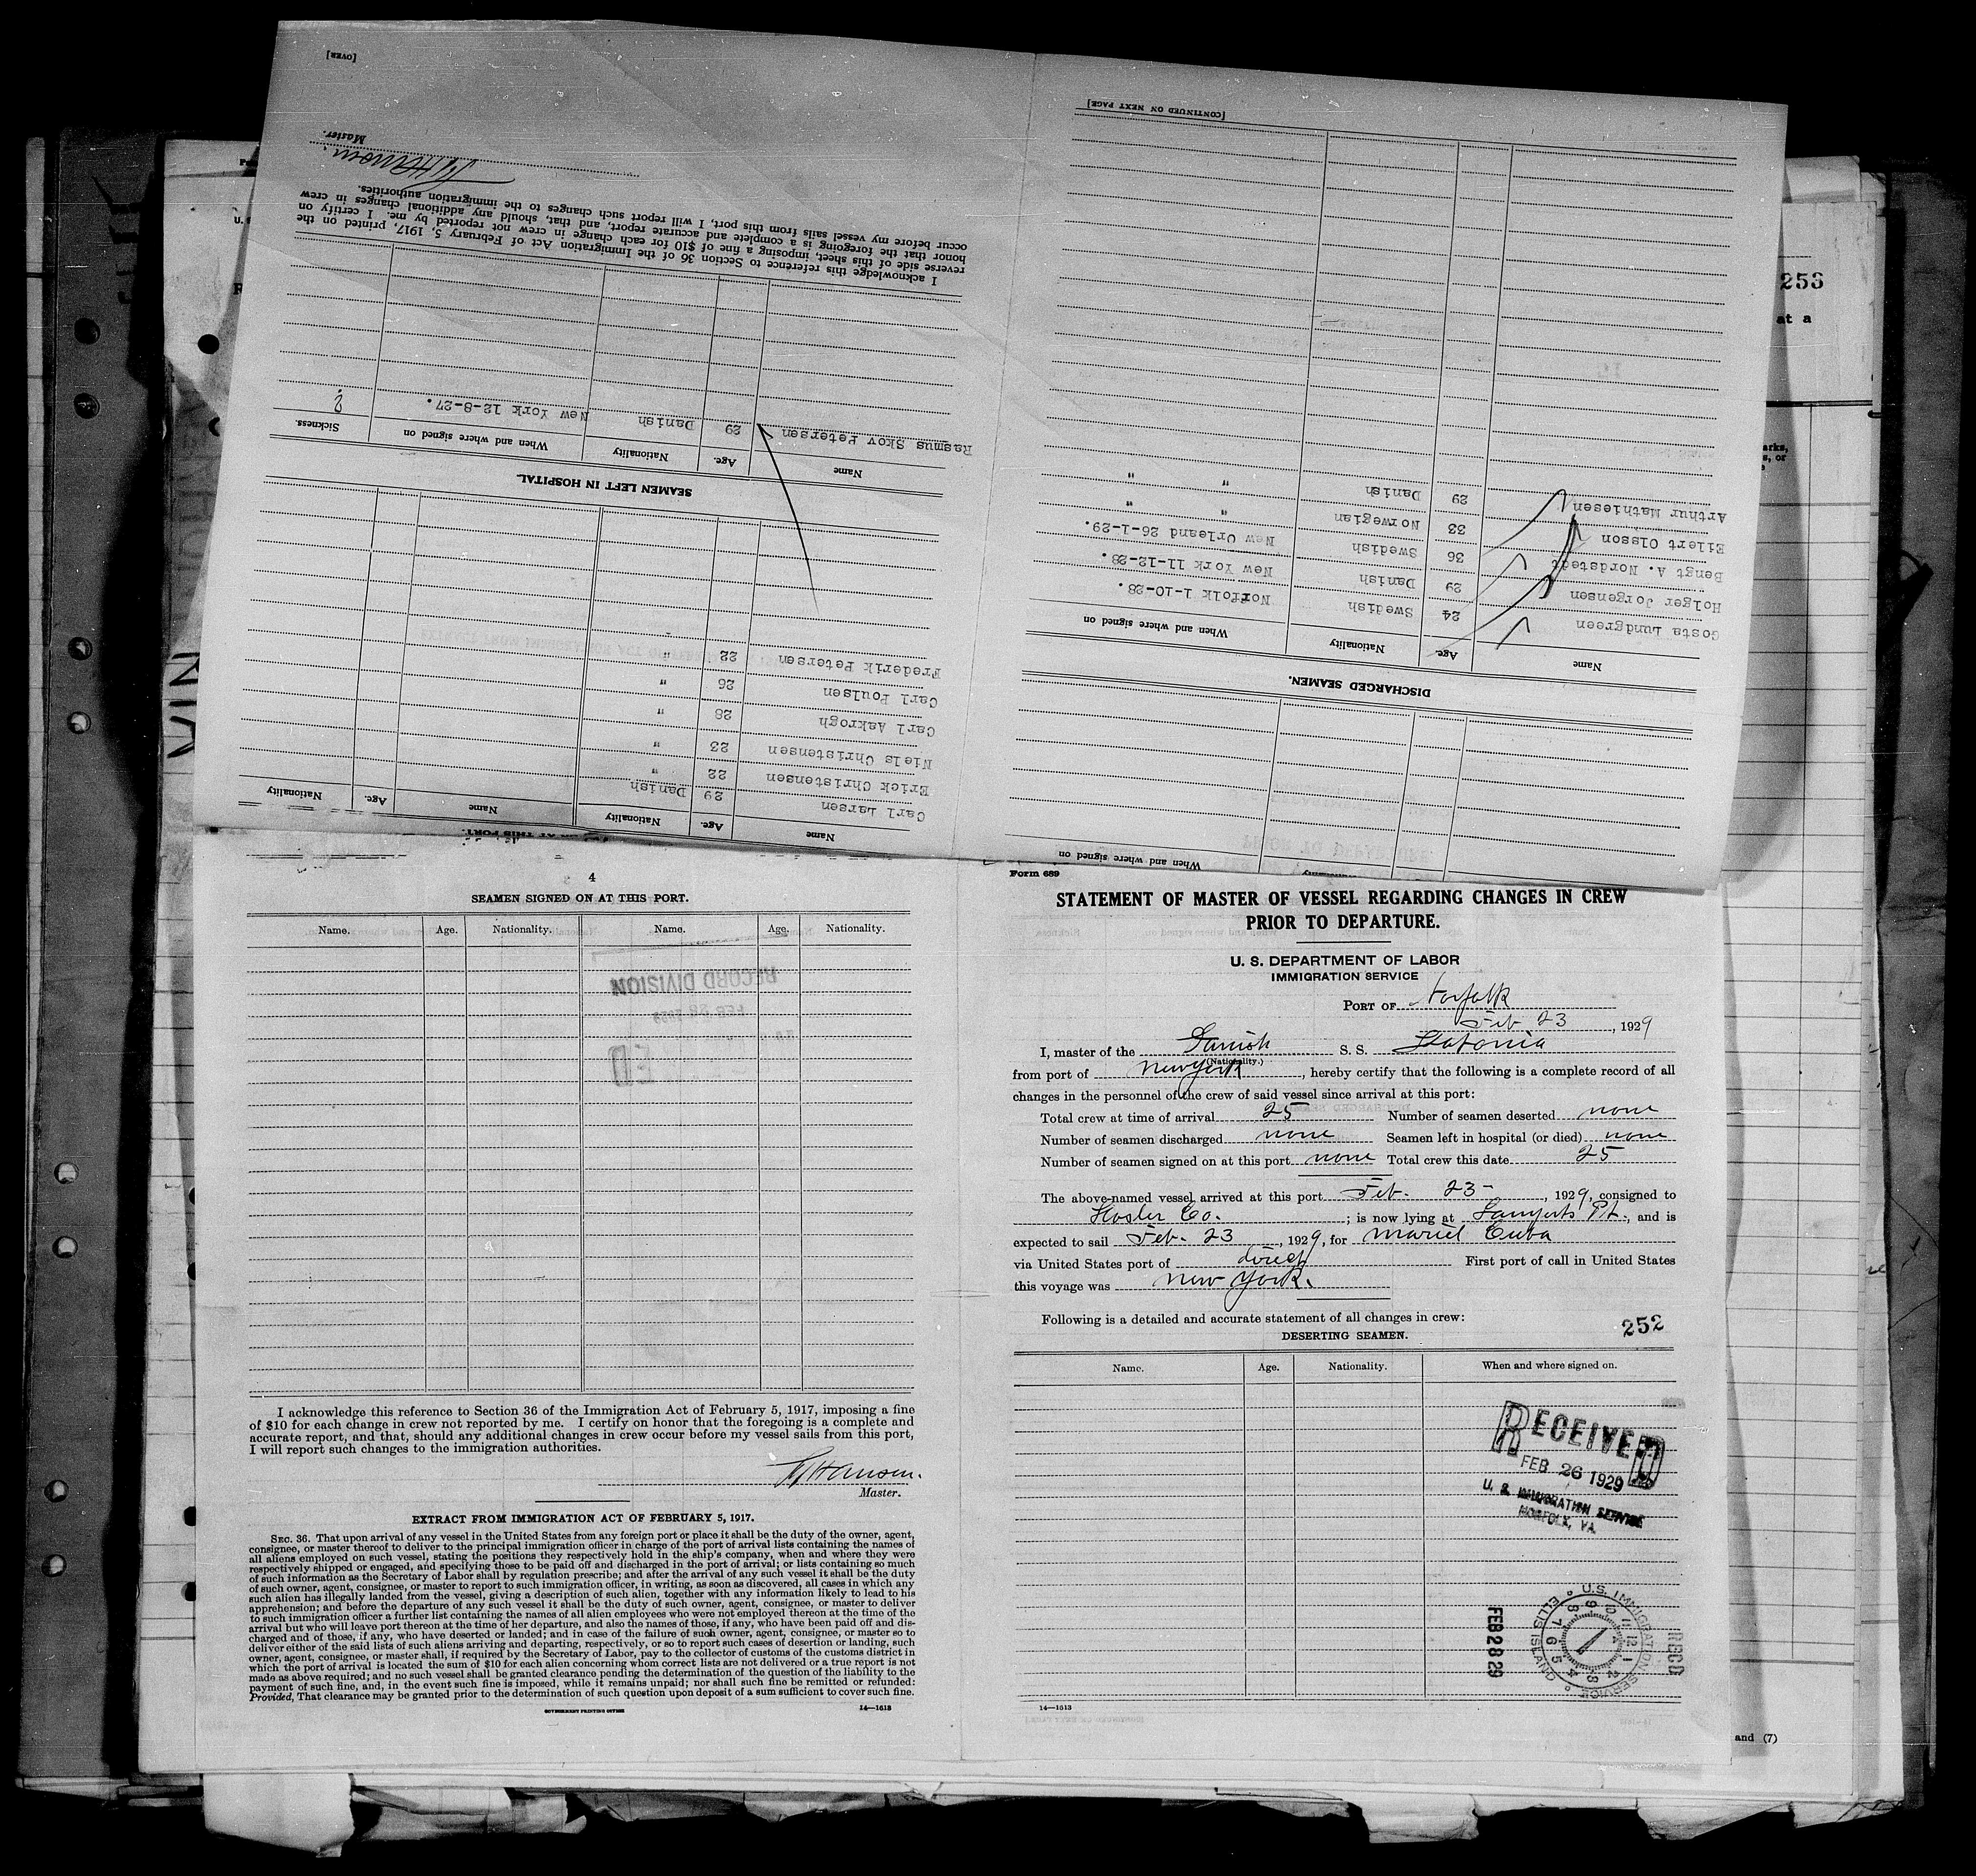 [OVER]
Master.
I acknowledge this reference to Section 36 of the Immigration Act of February 5, 1917, printed on the
reverse side of this sheet, imposing a fine of $10 for each change in crew not reported by me. I certify on
honor that the foregoing is a complete and accurate report, and that, should any additional changes in crew
occur before my vessel sails from this port, I will report such changes to the immigration authorities.
SEAMEN LEFT IN HOSPITAL.
Name Age. Nationality When and where signed on Sickness.
Rasmus Skov Petersen 29 Danish New York 12-8-27. ?
Name Age. Nationality Name Age. Nationality
Carl Larsen 29 Danish
Erick Christensen 22 "
Niels Christensen 23 "
Carl Aakrogh 28 "
Carl Poulsen 26 "
Frederik Petersen 22 "
When and where signed on
DISCHARGED SEAMEN.
Name Age. Nationality When and where signed on
Gosta Lundgreen 24 Swedish Norfolk 1-10-28.
Holger Jorgensen 29 Danish New York 11-12-28.
Bengt A. Nordstedt 36 Swedish New Orleand 26-1-29.
Eilert Olsson 33 Norwegian " "
Arthur Mathiesen 29 Danish " "
[CONTINUED ON NEXT PAGE]
253
at a
and (7)
4
SEAMEN SIGNED ON AT THIS PORT.
Name. Age. Nationality. Name. Age. Nationality.
RECORD DIVISION
I acknowledge this reference to Section 36 of the Immigration Act of February 5, 1917, imposing a fine
of $10 for each change in crew not reported by me. I certify on honor that the foregoing is a complete and
accurate report, and that, should any additional changes in crew occur before my vessel sails from this port,
I will report such changes to the immigration authorities.
Hansen.
Master.
EXTRACT FROM IMMIGRATION ACT OF FEBRUARY 5, 1917.
SEC. 36. That upon arrival of any vessel in the United States from any foreign port or place it shall be the duty of the owner, agent,
consignee, or master thereof to deliver to the principal immigration officer in charge of the port of arrival lists containing the names of
all aliens employed on such vessel, stating the positions they respectively hold in the ship's company, when and where they were
respectively shipped or engaged, and specifying those to be paid off and discharged in the port of arrival; or lists containing so much
of such information as the Secretary of Labor shall by regulation prescribe; and after the arrival of any such vessel it shall be the duty
of such owner, agent, consignee, or master to report to such immigration officer, in writing, as soon as discovered, all cases in which any
such alien has illegally landed from the vessel, giving a description of such alien, together with any information likely to lead to his
apprehension; and before the departure of any such vessel it shall be the duty of such owner, agent, consignee, or master to deliver
to such immigration officer a further list containing the names of all alien employees who were not employed thereon at the time of the
arrival but who will leave port thereon at the time of her departure, and also the names of those, if any, who have been paid off and dis-
charged and of those, if any, who have deserted or landed; and in case of the failure of such owner, agent, consignee, or master so to
deliver either of the said lists of such aliens arriving and departing, respectively, or so to report such cases of desertion or landing, such
owner, agent, consignee, or master shall, if required by the Secretary of Labor, pay to the collector of customs of the customs district in
which the port of arrival is located the sum of $10 for each alien concerning whom correct lists are not delivered or a true report is not
made as above required; and no such vessel shall be granted clearance pending the determination of the question of the liability to the
payment of such fine, and, in the event such fine is imposed, while it remains unpaid; nor shall such fine be remitted or refunded:
Provided, That clearance may be granted prior to the determination of such question upon deposit of a sum sufficient to cover such fine.
GOVERNMENT PRINTING OFFICE 14—1613
Form 689
STATEMENT OF MASTER OF VESSEL REGARDING CHANGES IN CREW
PRIOR TO DEPARTURE.
U. S. DEPARTMENT OF LABOR
IMMIGRATION SERVICE
PORT OF Norfolk
Feb 23, 1929
I, master of the Danish S. S.
(Nationality.)
from port of New York, hereby certify that the following is a complete record of all
changes in the personnel of the crew of said vessel since arrival at this port:
Total crew at time of arrival 25 Number of seamen deserted none
Number of seamen discharged none Seamen left in hospital (or died) none
Number of seamen signed on at this port none Total crew this date 25
The above-named vessel arrived at this port Feb. 23-, 1929, consigned to
Hosler Co.; is now lying at Pt., and is
expected to sail Feb. 23, 1929, for Mariel Cuba
via United States port of direct First port of call in United States
this voyage was New York.
Following is a detailed and accurate statement of all changes in crew:
252
DESERTING SEAMEN.
Name. Age. Nationality. When and where signed on.
RECEIVED
FEB 26 1929
U. S. IMMIGRATION SERVICE
NORFOLK, VA.
U.S. IMMIGRATION SERVICE ELLIS ISLAND
FEB 28 29
REC'D
14—1613